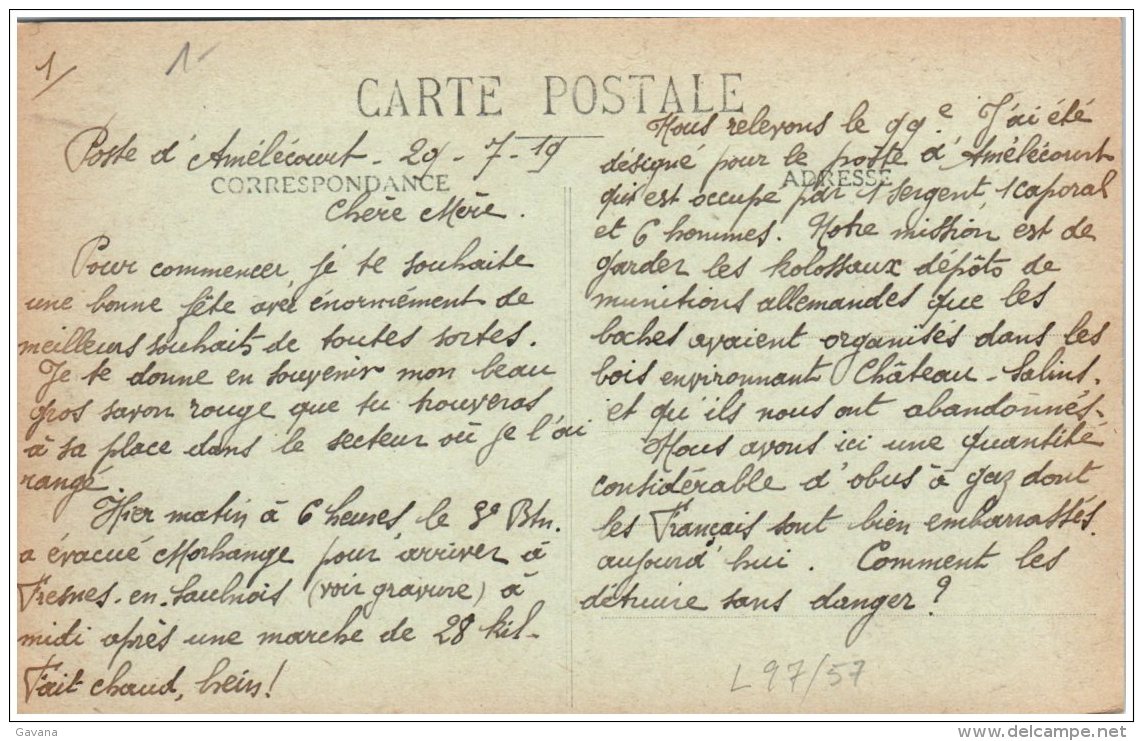 1/
1-
CARTE POSTALE
Poste d'Amélécourt - 29 - 7 - 19
CORRESPONDANCE
Chère Mère.
Pour commencer, je te souhaite
une bonne fête avec énormément de
meilleurs souhaits de toutes sortes.
Je te donne en souvenir mon beau
gros savon rouge que tu trouveras
à sa place dans le secteur où je l'ai
rangé.
Hier matin à 6 heures le 3e Btn.
a évacué Morhange pour arriver à
Fresnes-en-Saulnois (voir gravure) à
midi après une marche de 28 kil-
Fait chaud, hein!
Nous relevons le 99e. J'ai été
désigné pour le poste d'Amélécourt
ADRESSE
qui est occupé par 1 sergent, 1 caporal
et 6 hommes. Notre mission est de
garder les kolossaux dépôts de
munitions allemandes que les
boches avaient organisés dans les
bois environnant Château-Salins.
et qu'ils nous ont abandonnés-
Nous avons ici une quantité
considérable d'obus à gaz dont
les Français sont bien embarrassés.
aujourd'hui. Comment les
détruire sans danger?
L97/57
Gavana
www.delcampe.net